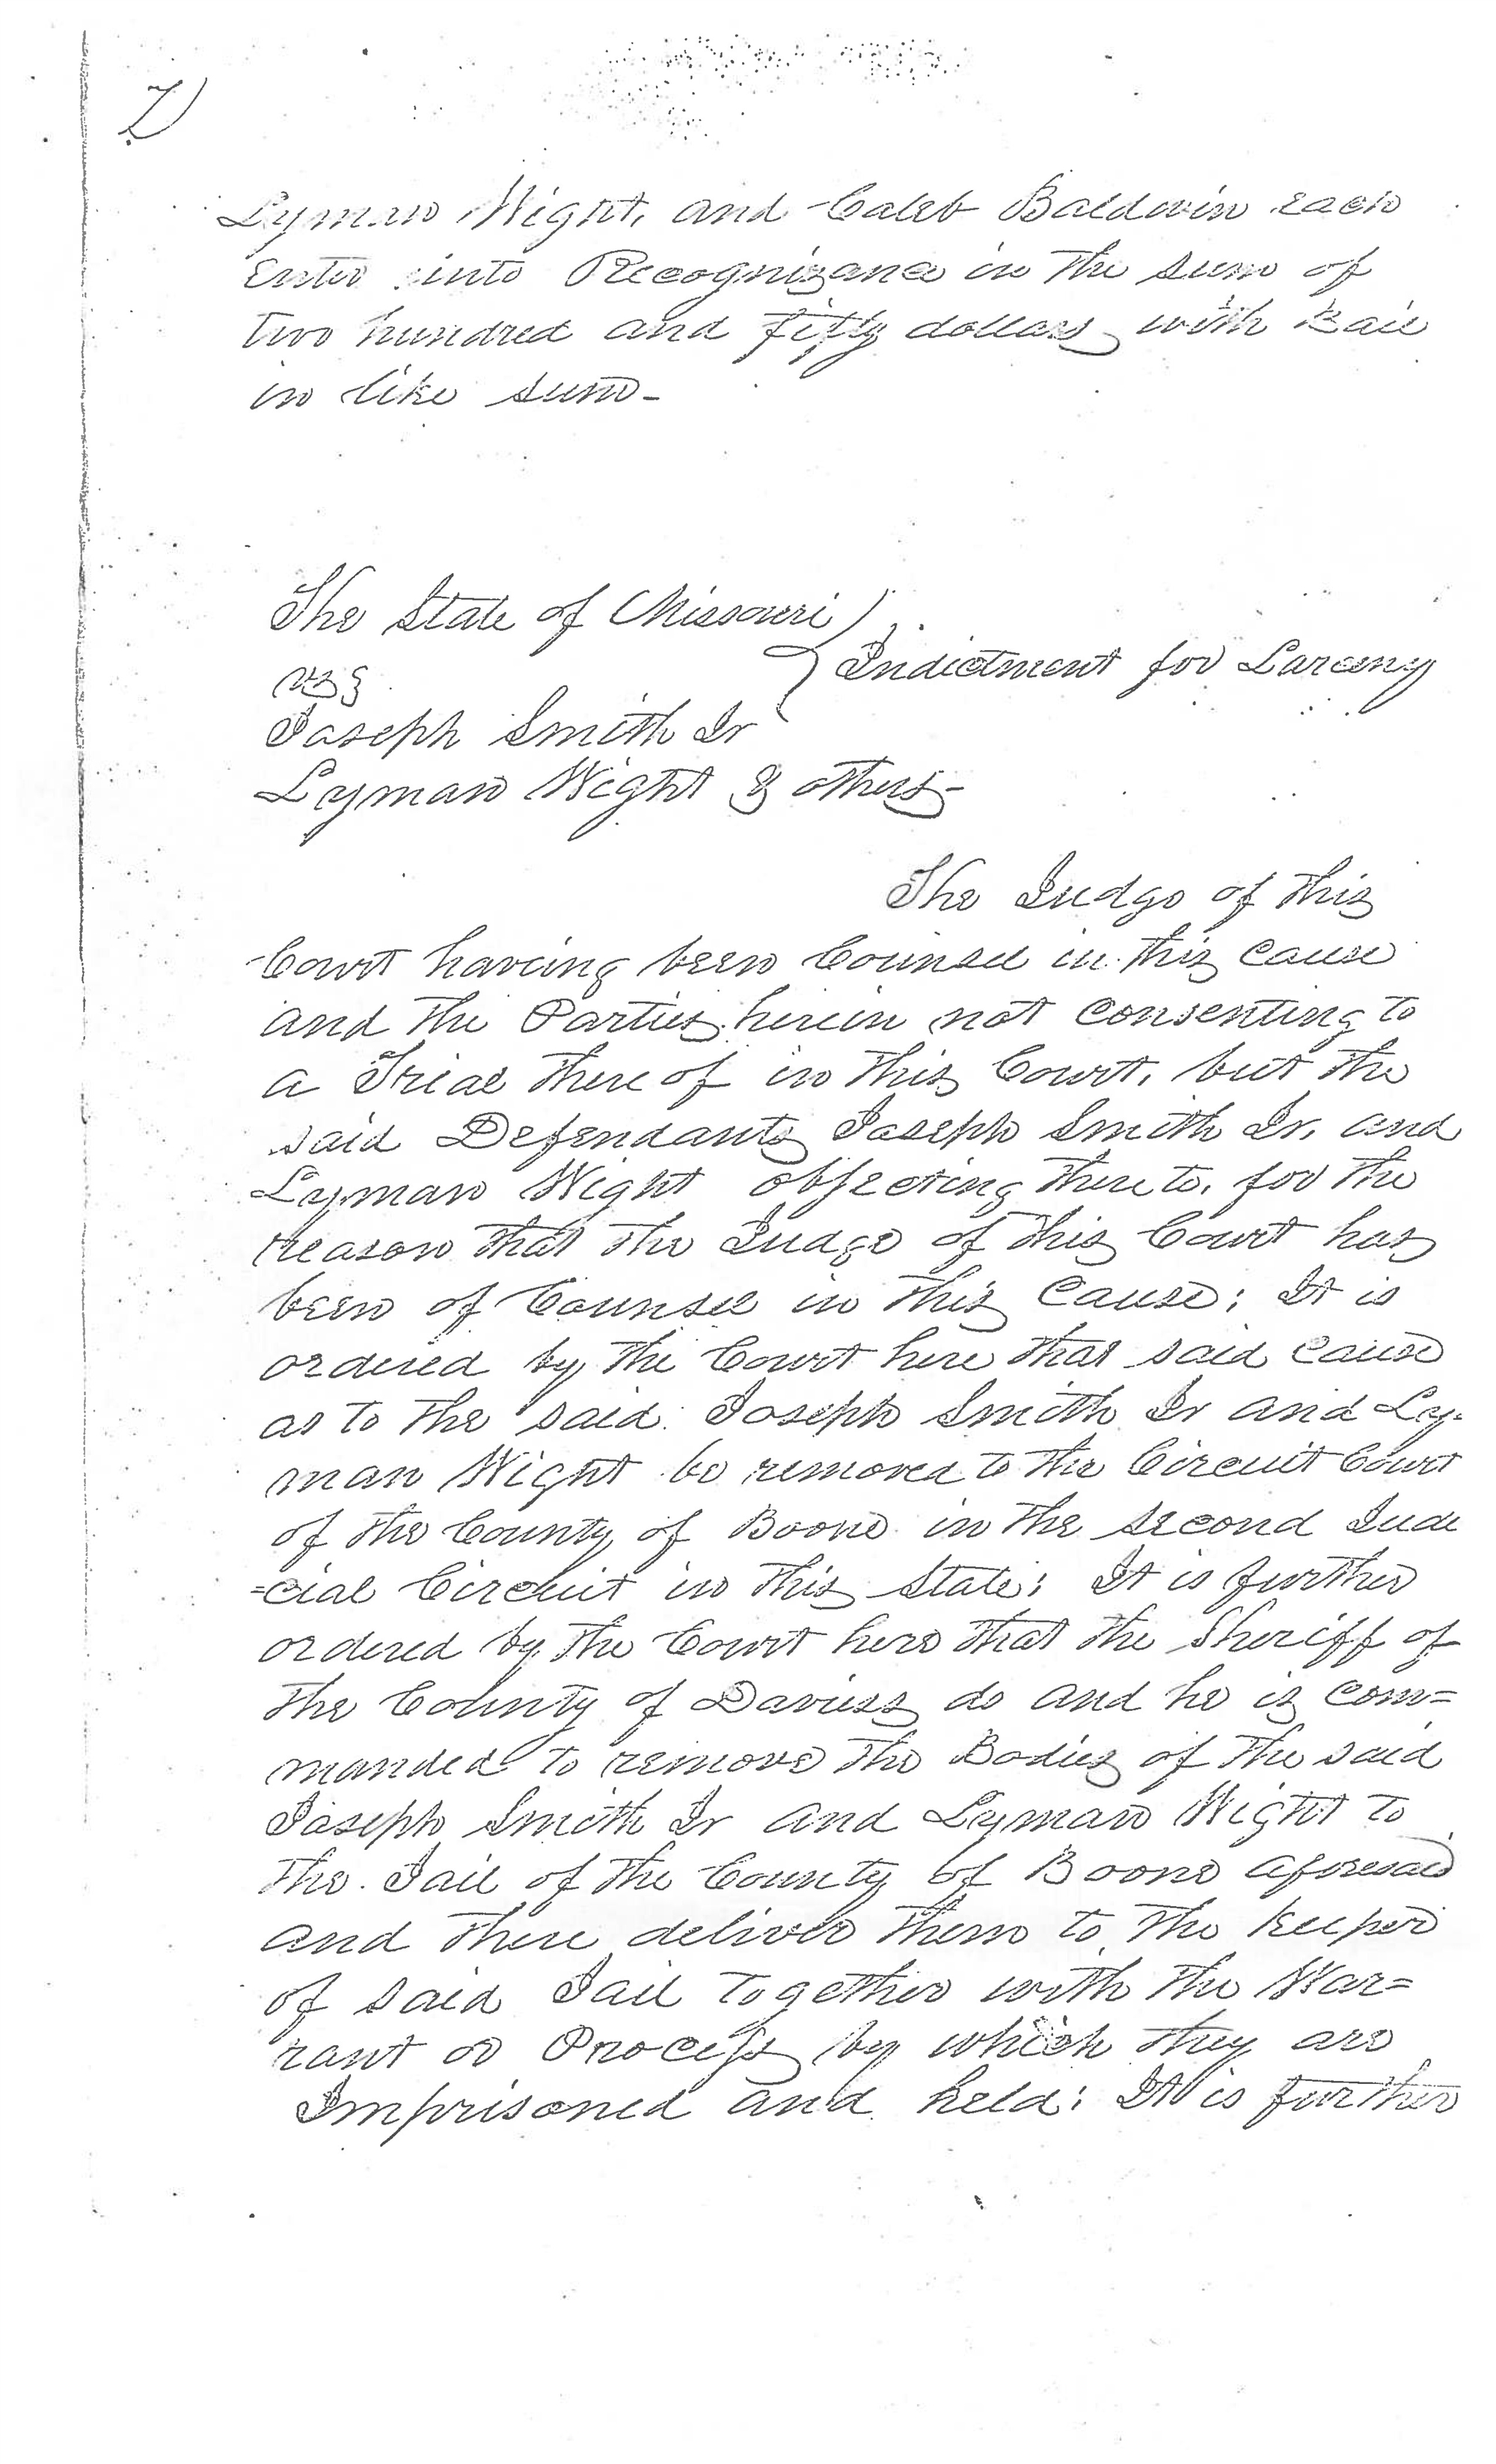 7)
Lyman Wight, and Caleb Baldwin each
Enter into Recognizance in the sum of
two hundred and fifty dollars with Bail
in like sum-
The State of Missouri )
vs } Indictment for Larceny
Joseph Smith Jr
Lyman Wight & others-
The Judge of this
Court having been Counsel in this cause
and the Parties herein not consenting to
a Trial there of in this Court, but the
said Defendants Joseph Smith Jr, and
Lyman Wight objecting there to, for the
reason that the Judge of this Court has
been of Counsel in this Cause; It is
ordered by the Court here that said cause
as to the said Joseph Smith Jr and Ly-
man Wight be removed to the Circuit Court
of the County of Boone in the second Judi
=cial Circuit in this State; It is further
ordered by the Court here that the Sheriff of
the County of Daviess do and he is com=
manded to remove the Bodies of the said
Joseph Smith Jr and Lyman Wight to
the Jail of the County of Boone aforesaid
and there deliver them to the keeper
of said Jail together with the War=
rant or Process by which they are
Imprisoned and held; It is further